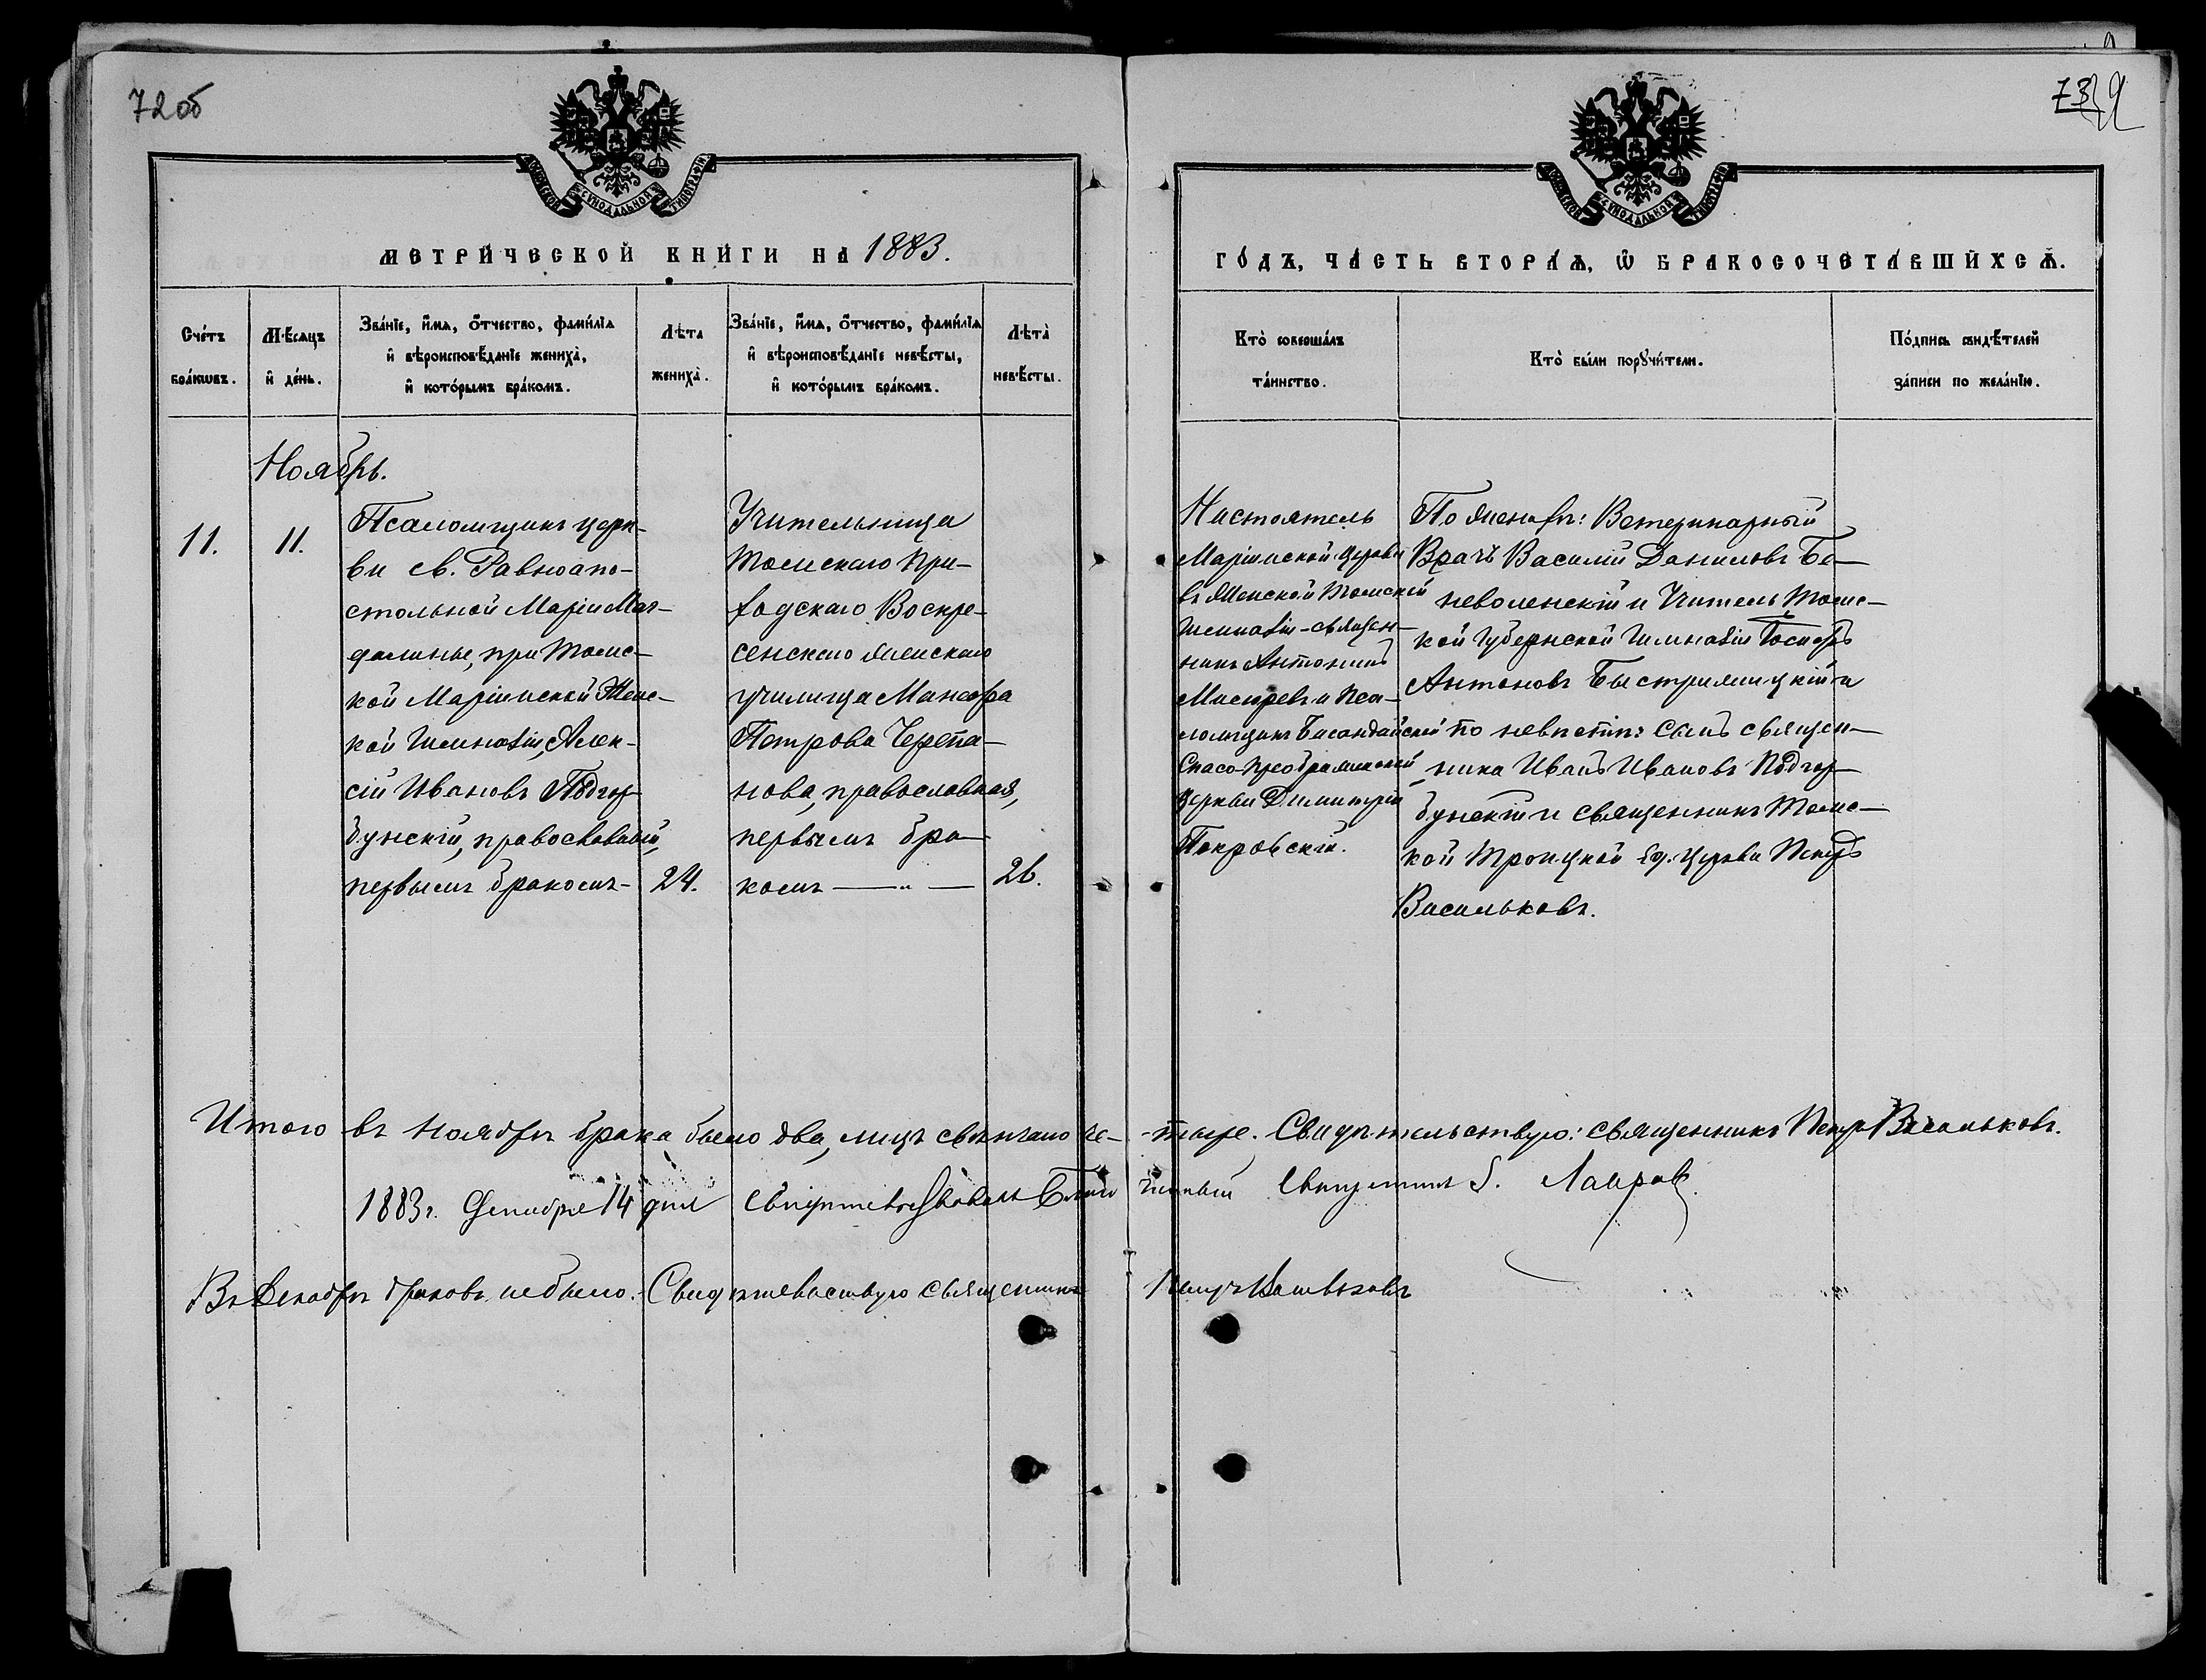 72 об
73
МОСКОВСКОЙ СѴНОДАЛЬНОЙ ТИПОГРАФІИ
МОСКОВСКОЙ СѴНОДАЛЬНОЙ ТИПОГРАФІИ
МЕТРИЧЕСКОЙ КНИГИ НА 1883.
ГОДЪ, ЧАСТЬ ВТОРАЯ, Ѡ БРАКОСОЧЕТАВШИХСЯ.
Счетъ
браковъ.
Мѣсяцъ
и день.
Званіе, имя, отчество, фамилія
и вѣроисповѣданіе жениха,
и которымъ бракомъ.
Лѣта
жениха.
Званіе, имя, отчество, фамилія
и вѣроисповѣданіе невѣсты,
и которымъ бракомъ.
Лѣта
невѣсты.
Кто совершалъ
таинство.
Кто были поручители.
Подпись свидѣтелей
записи по желанію.
Ноябрь.
11.
11.
Псаломщикъ церк-
ви св. Равноапо-
стольной Маріи Маг-
далины, при Томс-
кой Маріинской Женс-
кой Гимназіи, Алек-
сій Ивановъ Подгор-
бунскій, православный,
первымъ бракомъ-
24.
Учительница
Томскаго При-
ходскаго Воскре-
сенскаго женскаго
училища
Петрова Черепа-
нова, православная,
первымъ бра-
комъ — " —
26.
Настоятель
Маріинской Церкви
въ Женской Томской
Гимназіи - священ-
никъ Антонинъ
Мисюревъ и Пса-
ломщикъ Басандайской
Спасо-Преображенской
Церкви Димитрій
Покровскій.
По женихѣ: Ветеринарный
Врачъ Василій Даниловъ Бе-
неволенскій и Учитель Томс-
кой Губернской Гимназіи Іосифъ
Антоновъ Быстржицкій и
по невѣстѣ: сынъ священ-
ника Иванъ Ивановъ Подгор-
бунскій и священникъ Томс-
кой Троицкой ед. Церкви Петръ
Васильковъ.
Итого въ Ноябрѣ брака было два, лицъ свѣнчано че- -тыре. Свидѣтельствую: священникъ Петръ Васильковъ.
1883 г. Декабря 14 дня Свидѣтельствовалъ Благо чинный Священникъ Лавровъ.
Въ Декабрѣ браковъ не было. Свидѣтельствую священникъ Петръ Васильковъ